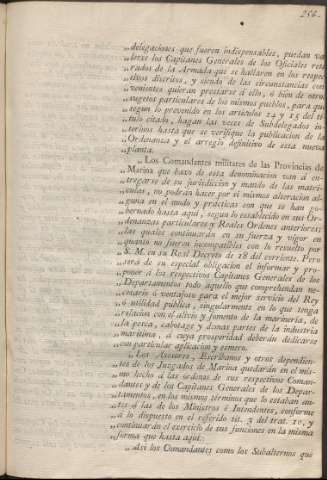 256.
„delegaciones que fueren indispensables, puedan va-
„lerse los Capitanes Generales de los Oficiales reti-
„rados de la Armada que se hallaren en los respec-
„tivos distritos, y siendo de las circunstancias con-
„venientes quieran prestarse á ello, ó bien de otros
„sugetos particulares de los mismos pueblos, para que
„segun lo prevenido en los artículos 24 y 25 del tí-
„tulo citado, hagan las veces de Subdelegados in-
„terinos hasta que se verifique la publicacion de la
„Ordenanza y el arreglo definitivo de esta nueva
„planta.
„Los Comandantes militares de las Provincias de
„Marina que baxo de esta denominacion van á en-
„tregarse de su jurisdiccion y mando de las matrí-
„culas, no podrán hacer por sí mismos alteracion al-
„guna en el modo y prácticas con que se han go-
„bernado hasta aquí, segun lo establecido en sus Or-
„denanzas particulares y Reales Ordenes anteriores;
„las quales continuarán en su fuerza y vigor en
„quanto no fueren incompatibles con lo resuelto por
„S. M. en su Real Decreto de 18 del corriente. Pero
„será de su especial obligacion el informar y pro-
„poner á los respectivos Capitanes Generales de los
„Departamentos todo aquello que comprehendan ne-
„cesario ó ventajoso para el mejor servicio del Rey
„ó utilidad pública, singularmente en lo que tenga
„relacion con el alivio y fomento de la marinería, de
„la pesca, cabotage y demas partes de la industria
„marítima, á cuya prosperidad deberán dedicarse
„con particular aplicacion y esmero.
„Los Asesores, Escribanos y otros dependien-
„tes de los Juzgados de Marina quedarán en el mis-
„mo hecho á las órdenes de sus respectivos Coman-
„dantes y de los Capitanes Generales de los Depar-
„tamentos, en los mismos términos que lo estaban an-
„tes á las de los Ministros é Intendentes, conforme
„á lo dispuesto en el referido tít. 3 del trat. 10, y
„continuarán el exercicio de sus funciones en la misma
„forma que hasta aquí.
„Así los Comandantes como los Subalternos que